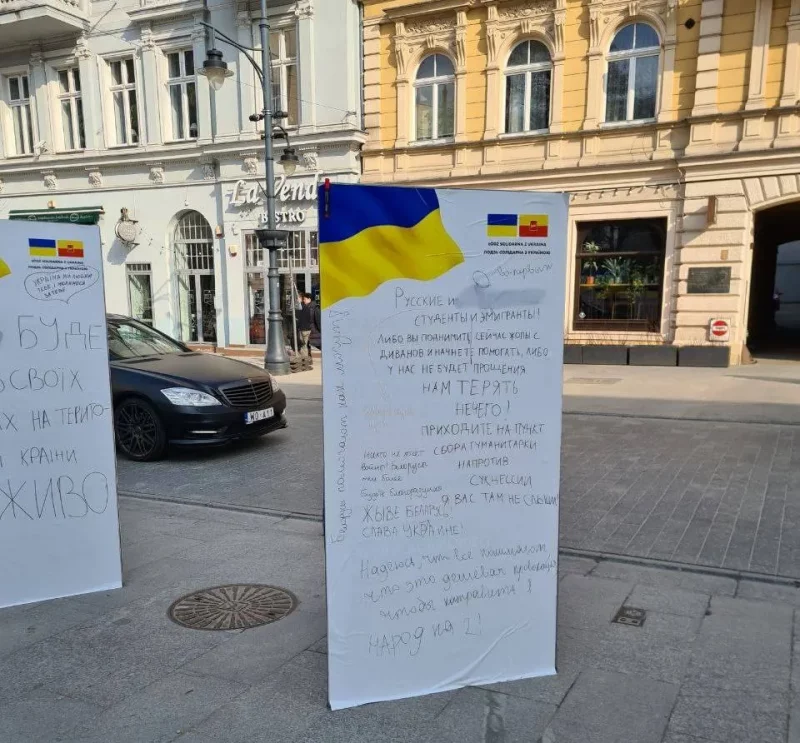 УКРАЇНА МИ ЛЮБИМ
ТЕБЕ І
БУДЕ
СВОЇХ
Х НА ТЕРИТО-
КРАЇНИ
ЖИВО
La Vende
BISTRO
ŁÓDŹ SOLIDARNA Z UKRAINĄ
ЛОДЗЬ СОЛІДАРНА З УКРАЇНОЮ
Во-первых
РУССКИЕ И
СТУДЕНТЫ И ЭМИГРАНТЫ!
ЛИБО ВЫ ПОДНИМИТЕ СЕЙЧАС ЖОПЫ С
ДИВАНОВ И НАЧНЕТЕ ПОМОГАТЬ, ЛИБО
У НАС НЕ БУДЕТ ПРОЩЕНИЯ
НАМ ТЕРЯТЬ
НЕЧЕГО!
ПРИХОДИТЕ НА ПУНКТ
СБОРА ГУМАНИТАРКИ
НАПРОТИВ
СУКЦЕССИИ
Я ВАС ТАМ НЕ СЛЫШУ!
Никто не хочет
войны! Белорусов
тем более
Будьте благоразумнее
ЖЫВЕ БЕЛАРУСЬ!
СЛАВА УКРАИНЕ!
Надеюсь, что все понимают,
что это дешевая провокация
чтобы направить!
НАРОД НА 2!